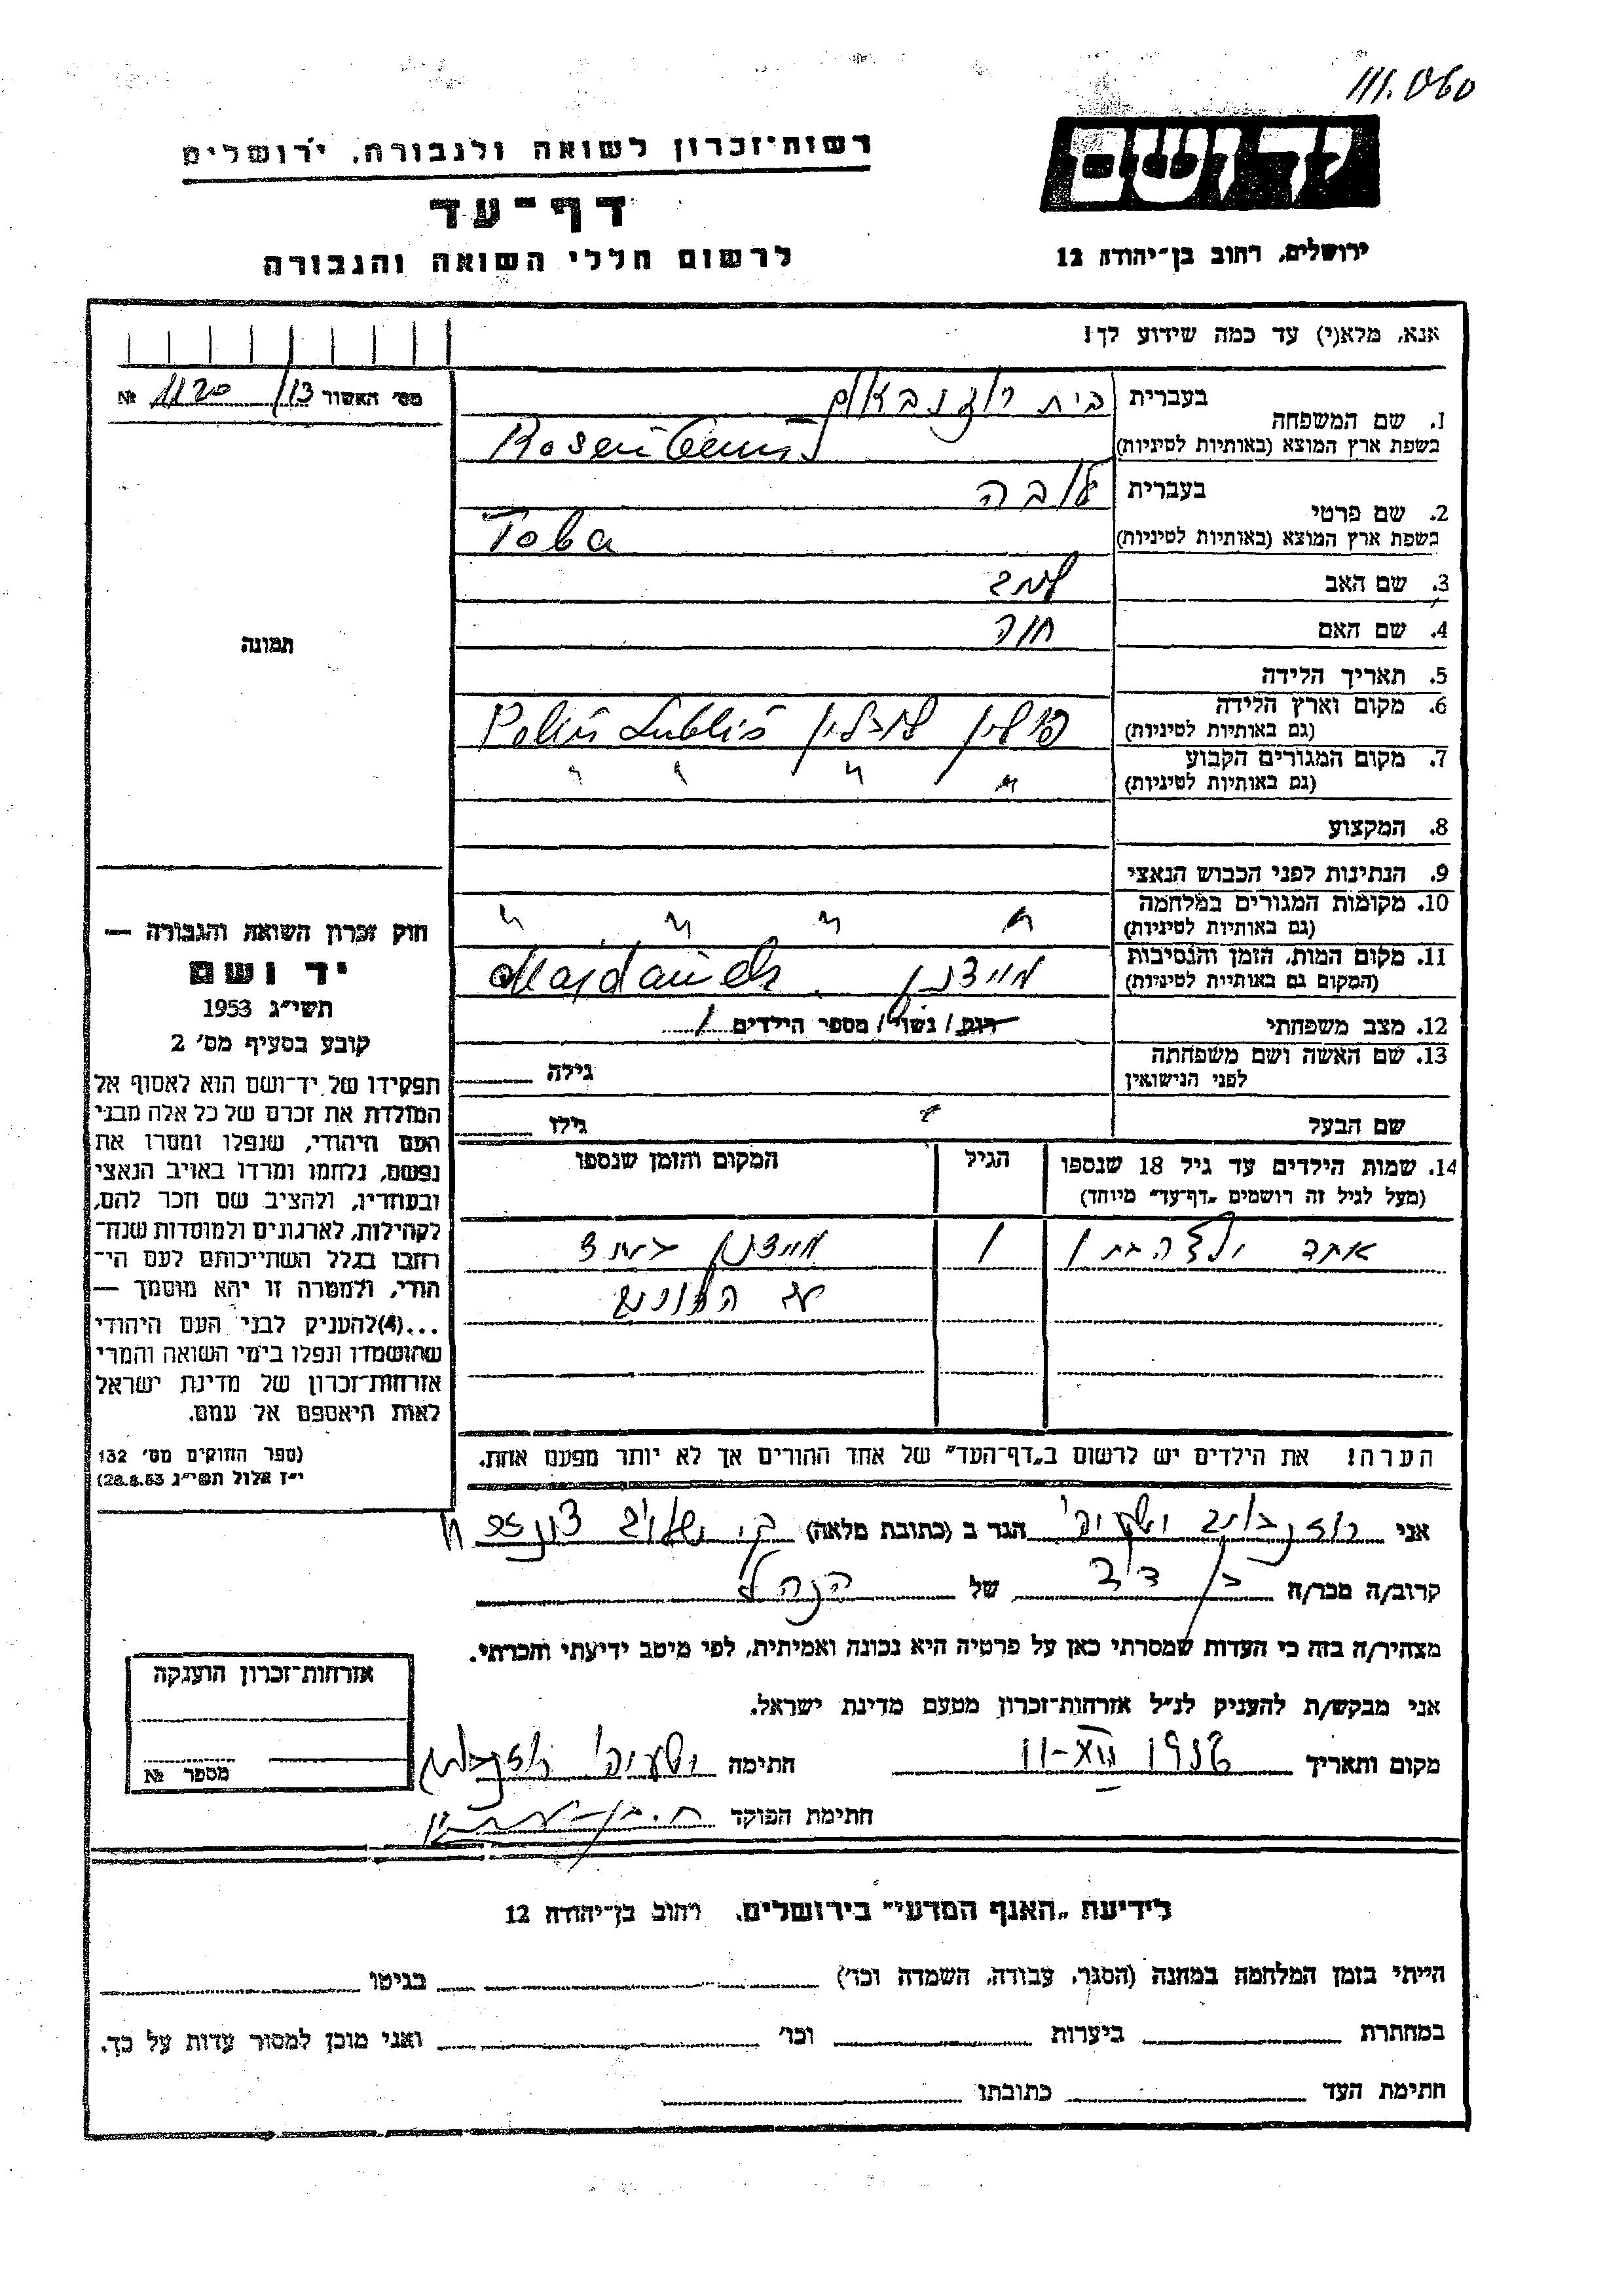 111.060
יד ושם
רשות־זכרון לשואה ולגבורה, ירושלים
דף־עד
לרשום חללי השואה והגבורה
ירושלים, רחוב בן־יהודה 12
אנא, מלא(י) עד כמה שידוע לך!
מס׳ האשור 13/ 1120 №
1. שם המשפחה
בעברית בית רוזנבאום
בשפת ארץ המוצא (באותיות לטיניות) Rosenbaum
2. שם פרטי
בעברית טובה
בשפת ארץ המוצא (באותיות לטיניות) Toba
3. שם האב
4. שם האם חוה
5. תאריך הלידה
6. מקום וארץ הלידה
(גם באותיות לטיניות) פולין לובלין Polin Lublin
7. מקום המגורים הקבוע
(גם באותיות לטיניות) " " " "
8. המקצוע
9. הנתינות לפני הכבוש הנאצי
10. מקומות המגורים במלחמה
(גם באותיות לטיניות) " " " "
11. מקום המות, הזמן והנסיבות
(המקום גם באותיות לטיניות) מיידנק. Majdanek
12. מצב משפחתי רווק / נשוי / מספר הילדים 1
13. שם האשה ושם משפחתה
לפני הנישואין
גילה
שם הבעל
גילו
14. שמות הילדים עד גיל 18 שנספו
(מעל לגיל זה רושמים „דף־עד״ מיוחד)
הגיל
המקום והזמן שנספו
אחד 1 מיידנק ביחד
עם
הערה! את הילדים יש לרשום ב„דף־העד״ של אחד ההורים אך לא יותר מפעם אחת.
תמונה
חוק זכרון השואה והגבורה —
יד ושם
תשי״ג 1953
קובע בסעיף מס׳ 2
תפקידו של יד־ושם הוא לאסוף אל
המולדת את זכרם של כל אלה מבני
העם היהודי, שנפלו ומסרו את
נפשם, נלחמו ומרדו באויב הנאצי
ובעוזריו, ולהציב שם וזכר להם,
לקהילות, לארגונים ולמוסדות שנח־
רבו בגלל השתייכותם לעם הי־
הודי, ולמטרה זו יהא מוסמך —
...(4) להעניק לבני העם היהודי
שהושמדו ונפלו בימי השואה והמרי
אזרחות־זכרון של מדינת ישראל
לאות היאספם אל עמם.
(ספר החוקים מס׳ 132
י״ז אלול תשי״ג 28.8.53)
אני רוזנבוים הגר ב (כתובת מלאה)
קרוב/ה מכר/ה בן דוד של
מצהיר/ה בזה כי העדות שמסרתי כאן על פרטיה היא נכונה ואמיתית, לפי מיטב ידיעתי והכרתי.
אני מבקש/ת להעניק לנ״ל אזרחות־זכרון מטעם מדינת ישראל.
מקום ותאריך 11-XII 1956 חתימה
חתימת הפוקד
אזרחות־זכרון הוענקה
מספר №
לידיעת „האגף המדעי״ בירושלים, רחוב בן־יהודה 12
הייתי בזמן המלחמה במחנה (הסגר, עבודה, השמדה וכו׳) בגיטו
במחתרת ביערות וכו׳ ואני מוכן למסור עדות על כך.
חתימת העד כתובתו